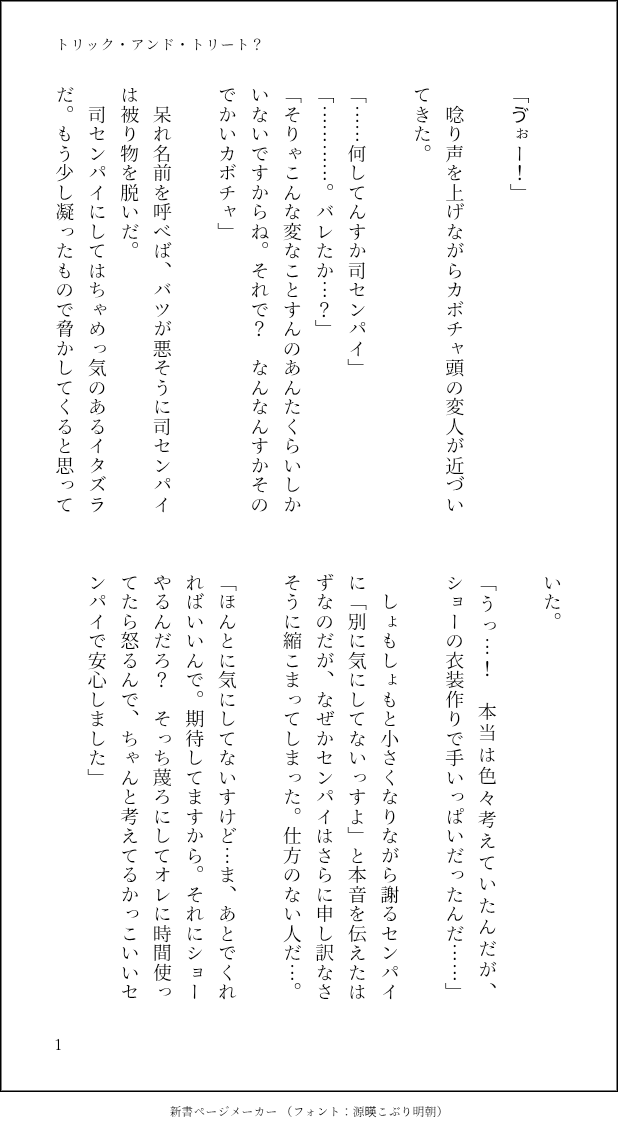 トリック・アンド・トリート？
「ゔぉー！」
　唸り声を上げながらカボチャ頭の変人が近づい
てきた。
「……何してんすか司センパイ」
「…………。バレたか…？」
「そりゃこんな変なことすんのあんたくらいしか
いないですからね。それで？　なんなんすかその
でかいカボチャ」
　呆れ名前を呼べば、バツが悪そうに司センパイ
は被り物を脱いだ。
　司センパイにしてはちゃめっ気のあるイタズラ
だ。もう少し凝ったもので脅かしてくると思って
いた。
「うっ…！　本当は色々考えていたんだが、
ショーの衣装作りで手いっぱいだったんだ……」
　しょもしょもと小さくなりながら謝るセンパイ
に「別に気にしてないっすよ」と本音を伝えたは
ずなのだが、なぜかセンパイはさらに申し訳なさ
そうに縮こまってしまった。仕方のない人だ…。
「ほんとに気にしてないすけど…ま、あとでくれ
ればいいんで。期待してますから。それにショー
やるんだろ？　そっち蔑ろにしてオレに時間使っ
てたら怒るんで、ちゃんと考えてるかっこいいセ
ンパイで安心しました」
1
新書ページメーカー（フォント：源暎こぶり明朝）